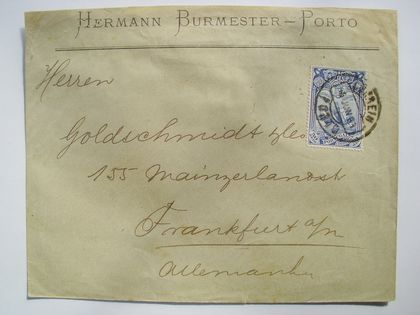 HERMANN BURMESTER - PORTO
Herren
Goldschmidt
155 Mainzerlandst
Frankfurt a/m
Allemanha